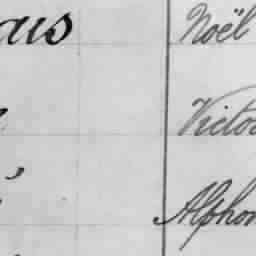 ais Noël
Victo
Alphon